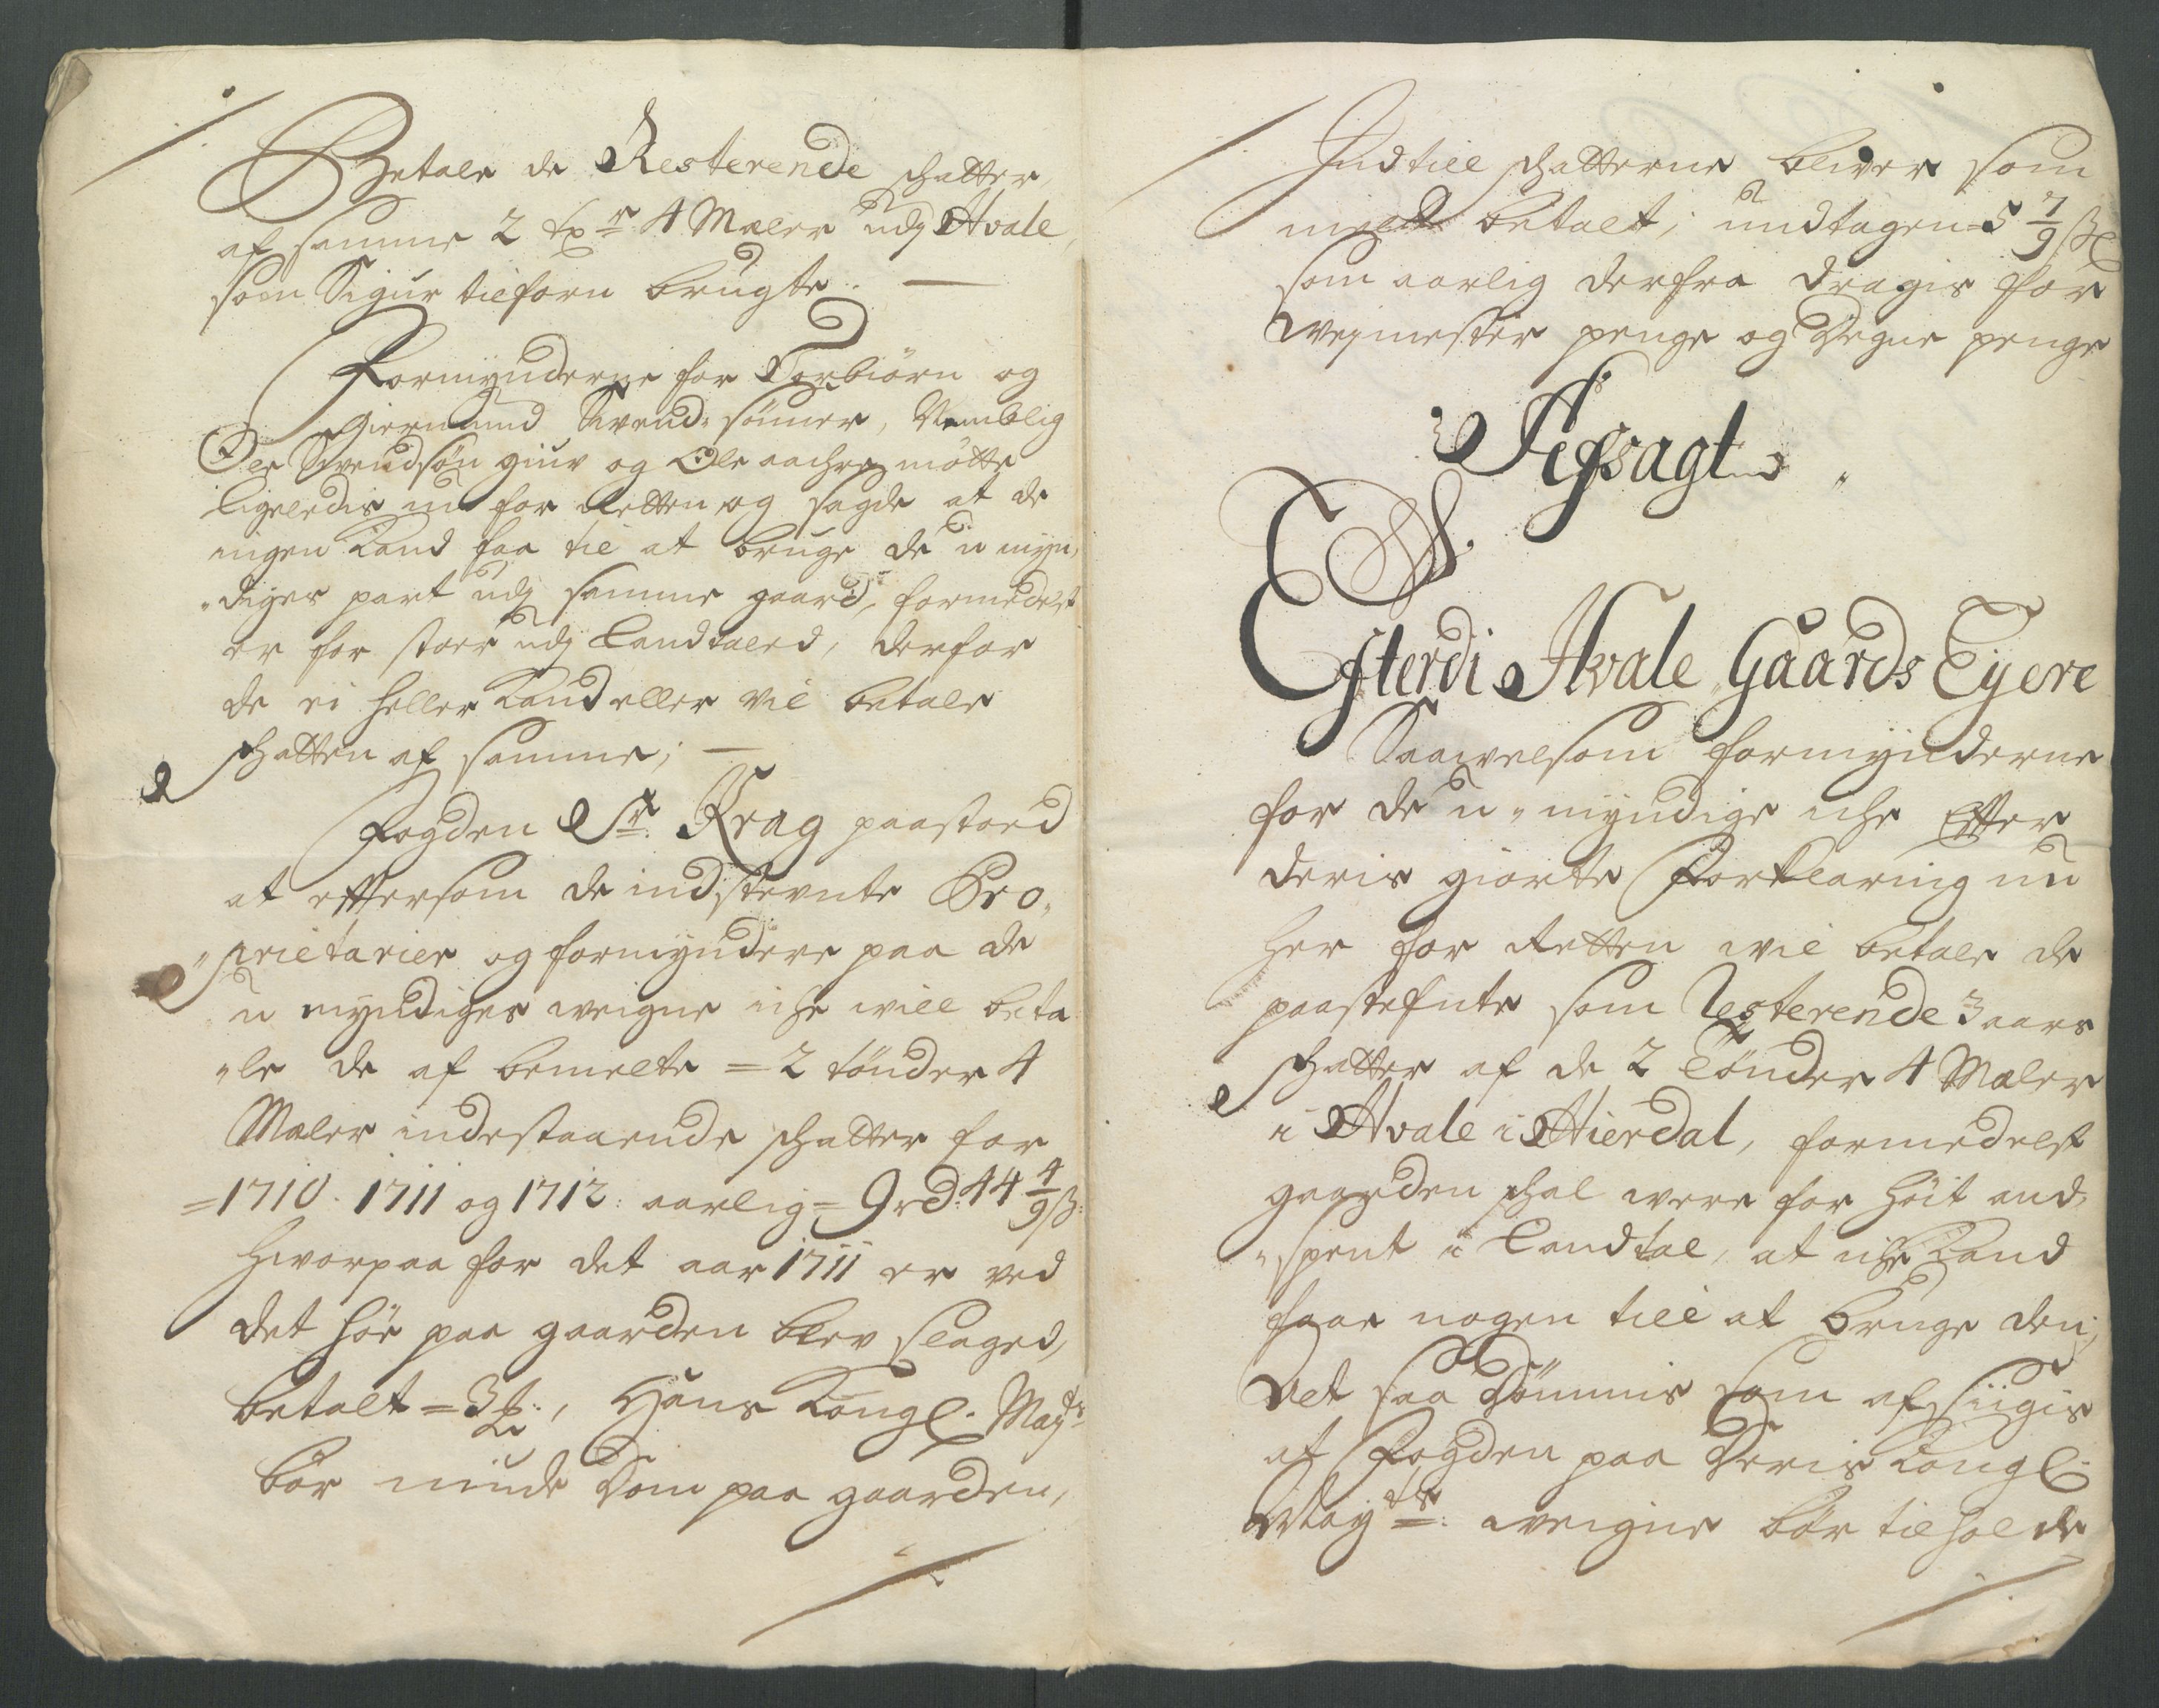 Betale de Resterende schatter
af samme 2 tx:r 4 Maler udj Hvale,
som Sigur tilforn brugte. —
Formynderne for Torbiörn og
Giermund Svend-sönner, Nemblig
Ole Svendsön giuv og Ole aachre mötte
ligeledis nu for Retten og sagde at de
ingen Kand faa til at bruge de u-myn,
„diges part udj samme gaard, formedelst
er for stoer udj Landskield, derfor
de ei heller Kand eller vil betale
schatten af samme; —
Fogden Sr. Krag paastoed
at eftersom de indstevnte Pro,
„prietarier og formyndere paa de
u myndiges veigne iche will beta
„le de af bemelte = 2 tönder 4
Maler indestaaende schatter for
= 1710. 1711 og 1712: aarlig = 9 rd: 44 4/9 ß:
hvorpaa for det aar 1711 er ved
det höe paa gaarden blev slaged,
betalt = 3 , Hans Kongl. Mayts
bör niude Dom paa gaarden,
Indtill schatterne bliver som
meldt betalt, undtagen = 5 7/9 ß
som aarlig derfra dragis for
Vejmester penge og Degne penge
Afsagt
Efterdi Hvale Gaards Eyere
Saavelsom formynderne
for de u-myndige iche Efter
deris giorte Forklaring nu
her for Retten vil betale de
paastefnte som Resterende 3 aars
schatter af de 2 Tönder 4 Maler
i Hvale i Hierdal, formedelst
gaarden schal vere for höit and,
„spent i Landskal, at iche Kand
faae nogen till at bruge den;
Det saa Dömmis som afsiigis
at Fogden paa Deris Kongl.
Mayts: veigne bör tilholde